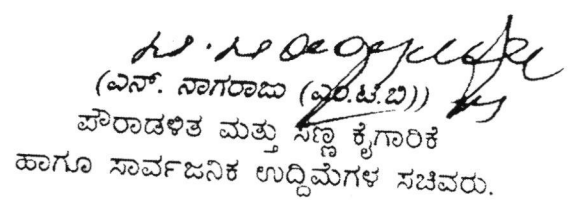 (ಎನ್. ನಾಗರಾಜು (ಎಂ.ಟಿ.ಬಿ))
ಪೌರಾಡಳಿತ ಮತ್ತು ಸಣ್ಣ ಕೈಗಾರಿಕೆ
ಹಾಗೂ ಸಾರ್ವಜನಿಕ ಉದ್ದಿಮೆಗಳ ಸಚಿವರು.